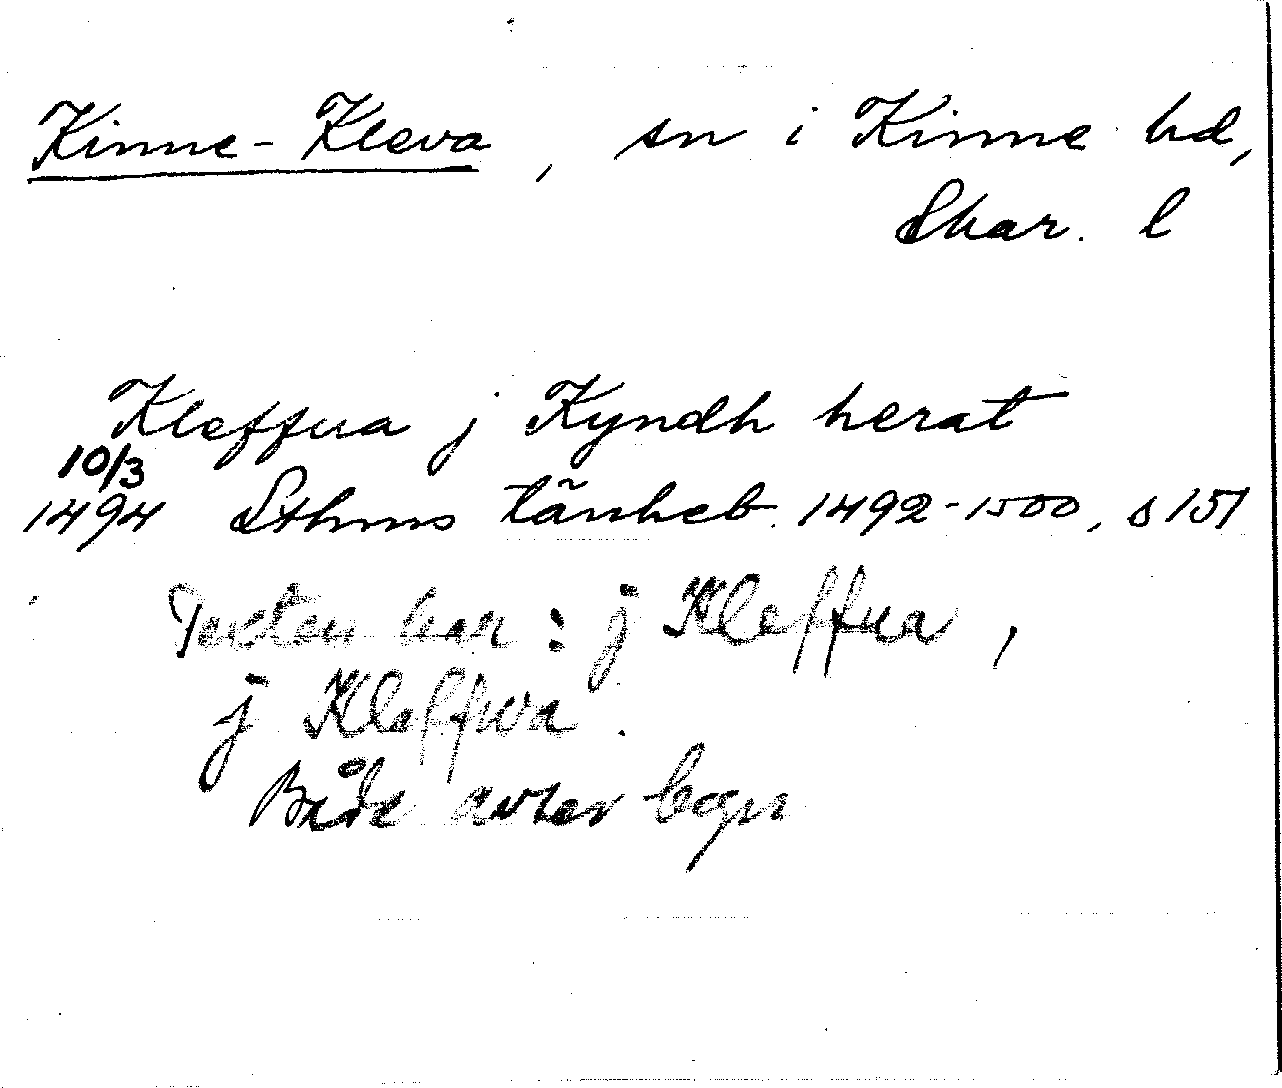 Kinne-Kleva, sn i Kinne hd,
Skar. l
Kleffua j Kyndh herat
10/3
1494 Sthms tänkeb. 1492-1500, s 151
Texten har: j Kleffua,
j Kleffwa.
Både avser